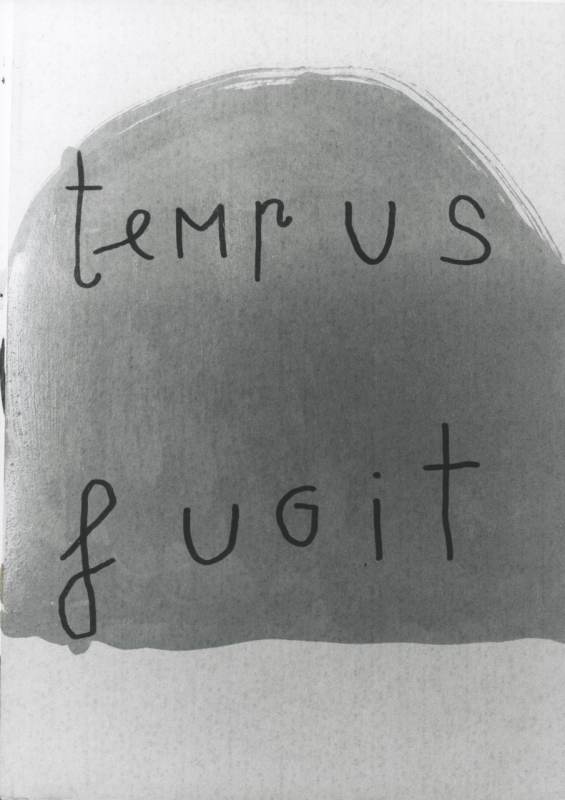 tempus
fugit